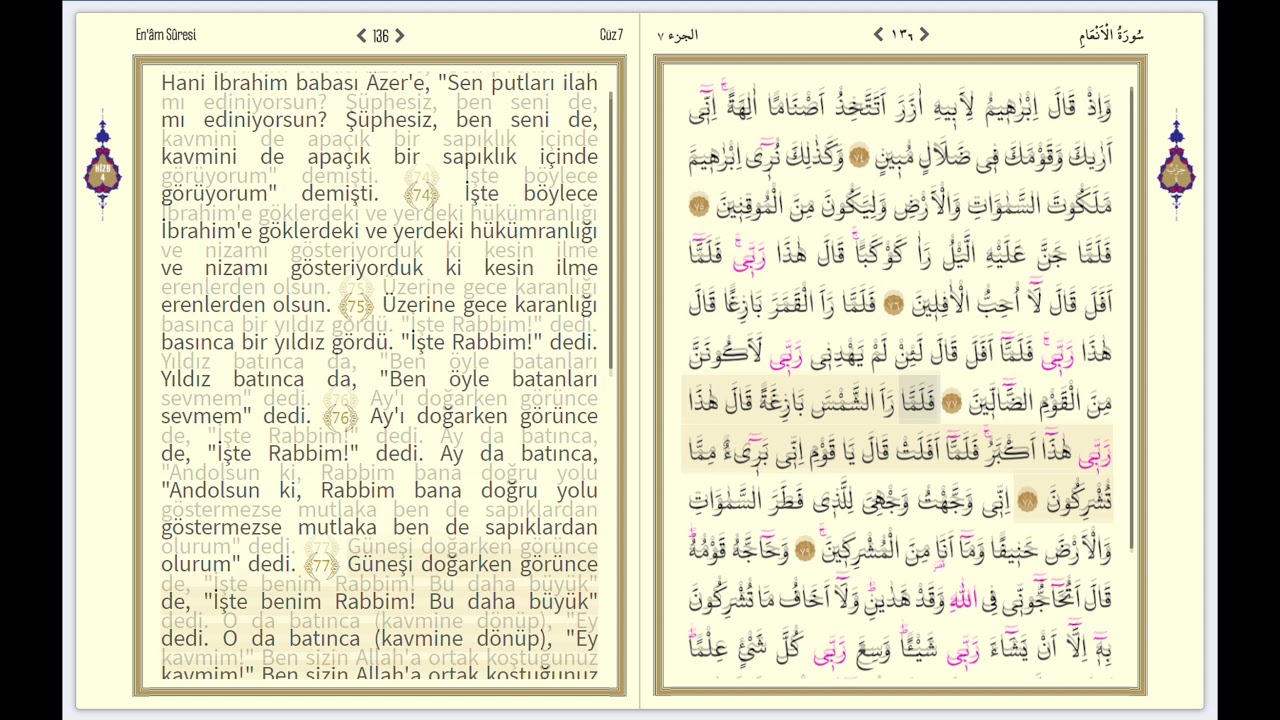 En'âm Sûresi
136
Cüz 7
Hani İbrahim babası Âzer'e, "Sen putları ilah
mı ediniyorsun? Şüphesiz, ben seni de,
kavmini de apaçık bir sapıklık içinde
görüyorum" demişti. ﴾74﴿ İşte böylece
İbrahim'e göklerdeki ve yerdeki hükümranlığı
ve nizamı gösteriyorduk ki kesin ilme
erenlerden olsun. ﴾75﴿ Üzerine gece karanlığı
basınca bir yıldız gördü. "İşte Rabbim!" dedi.
Yıldız batınca da, "Ben öyle batanları
sevmem" dedi. ﴾76﴿ Ay'ı doğarken görünce
de, "İşte Rabbim!" dedi. Ay da batınca,
"Andolsun ki, Rabbim bana doğru yolu
göstermezse mutlaka ben de sapıklardan
olurum" dedi. ﴾77﴿ Güneşi doğarken görünce
de, "İşte benim Rabbim! Bu daha büyük"
dedi. O da batınca (kavmine dönüp), "Ey
kavmim!" Ben sizin Allah'a ortak koştuğunuz
HİZB
4
سُورَةُ الْاَنْعَامِ
١٣٦
الجزء ٧
وَاِذْ قَالَ اِبْرٰه۪يمُ لِاَب۪يهِ اٰزَرَ اَتَتَّخِذُ اَصْنَامًا اٰلِهَةًۚ اِنّ۪ٓي
اَرٰيكَ وَقَوْمَكَ ف۪ي ضَلَالٍ مُب۪ينٍ ٧٤ وَكَذٰلِكَ نُر۪ٓي اِبْرٰه۪يمَ
مَلَكُوتَ السَّمٰوَاتِ وَالْاَرْضِ وَلِيَكُونَ مِنَ الْمُوقِن۪ينَ ٧٥
فَلَمَّا جَنَّ عَلَيْهِ الَّيْلُ رَاٰ كَوْكَبًاۚ قَالَ هٰذَا رَبّ۪يۚ فَلَمَّٓا
اَفَلَ قَالَ لَٓا اُحِبُّ الْاٰفِل۪ينَ ٧٦ فَلَمَّا رَاَ الْقَمَرَ بَازِغًا قَالَ
هٰذَا رَبّ۪يۚ فَلَمَّٓا اَفَلَ قَالَ لَئِنْ لَمْ يَهْدِن۪ي رَبّ۪ي لَاَكُونَنَّ
مِنَ الْقَوْمِ الضَّٓالّ۪ينَ ٧٧ فَلَمَّا رَاَ الشَّمْسَ بَازِغَةً قَالَ هٰذَا
رَبّ۪ي هٰذَٓا اَكْبَرُۚ فَلَمَّٓا اَفَلَتْ قَالَ يَا قَوْمِ اِنّ۪ي بَر۪ٓيءٌ مِمَّا
تُشْرِكُونَ ٧٨ اِنّ۪ي وَجَّهْتُ وَجْهِيَ لِلَّذ۪ي فَطَرَ السَّمٰوَاتِ
وَالْاَرْضَ حَن۪يفًا وَمَٓا اَنَا۬ مِنَ الْمُشْرِك۪ينَۚ ٧٩ وَحَٓاجَّهُ قَوْمُهُۜ
قَالَ اَتُحَٓاجُّٓونّ۪ي فِي اللّٰهِ وَقَدْ هَدٰينِۜ وَلَٓا اَخَافُ مَا تُشْرِكُونَ
بِه۪ٓ اِلَّٓا اَنْ يَشَٓاءَ رَبّ۪ي شَيْـًٔاۜ وَسِعَ رَبّ۪ي كُلَّ شَيْءٍ عِلْمًاۜ